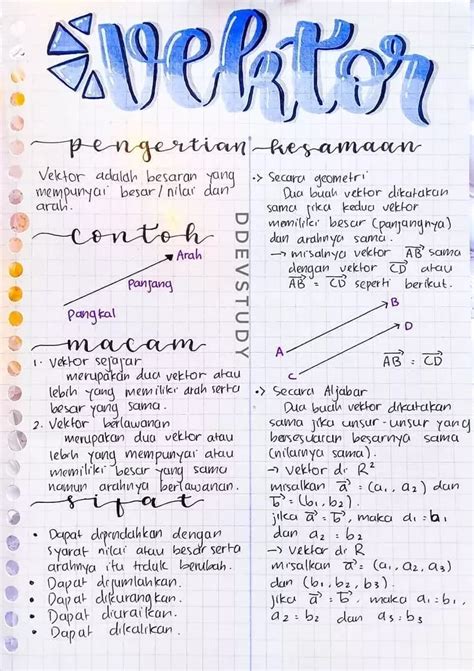 vektor
pengertian
Vektor adalah besaran yang
mempunyai besar/nilai dan
arah.
contoh
Arah
Panjang
Pangkal
macam
1. Vektor sejajar
merupakan dua vektor atau
lebih yang memiliki arah serta
besar yang sama.
2. Vektor berlawanan
merupakan dua vektor atau
lebih yang mempunyai atau
memiliki besar yang sama
namun arahnya berlawanan.
sifat
• Dapat dipindahkan dengan
syarat nilai atau besar serta
arahnya itu tidak berubah.
• Dapat dijumlahkan.
• Dapat dikurangkan.
• Dapat diuraikan.
• Dapat dikalikan.
DDEVSTUDY
kesamaan
•> Secara geometri
Dua buah vektor dikatakan
sama jika kedua vektor
memiliki besar (panjangnya)
dan arahnya sama.
→ misalnya vektor AB sama
dengan vektor CD atau
AB = CD seperti berikut.
B
D
A
C
AB = CD
•> Secara Aljabar
Dua buah vektor dikatakan
sama jika unsur-unsur yang
bersesuaian besarnya sama
(nilainya sama).
→ Vektor di R²
misalkan a = (a₁, a₂) dan
b = (b₁, b₂).
jika a = b, maka a₁ = b₁
dan a₂ = b₂
→ Vektor di R
misalkan a = (a₁, a₂, a₃)
dan (b₁, b₂, b₃).
jika a = b, maka a₁ = b₁,
a₂ = b₂ dan a₃ = b₃